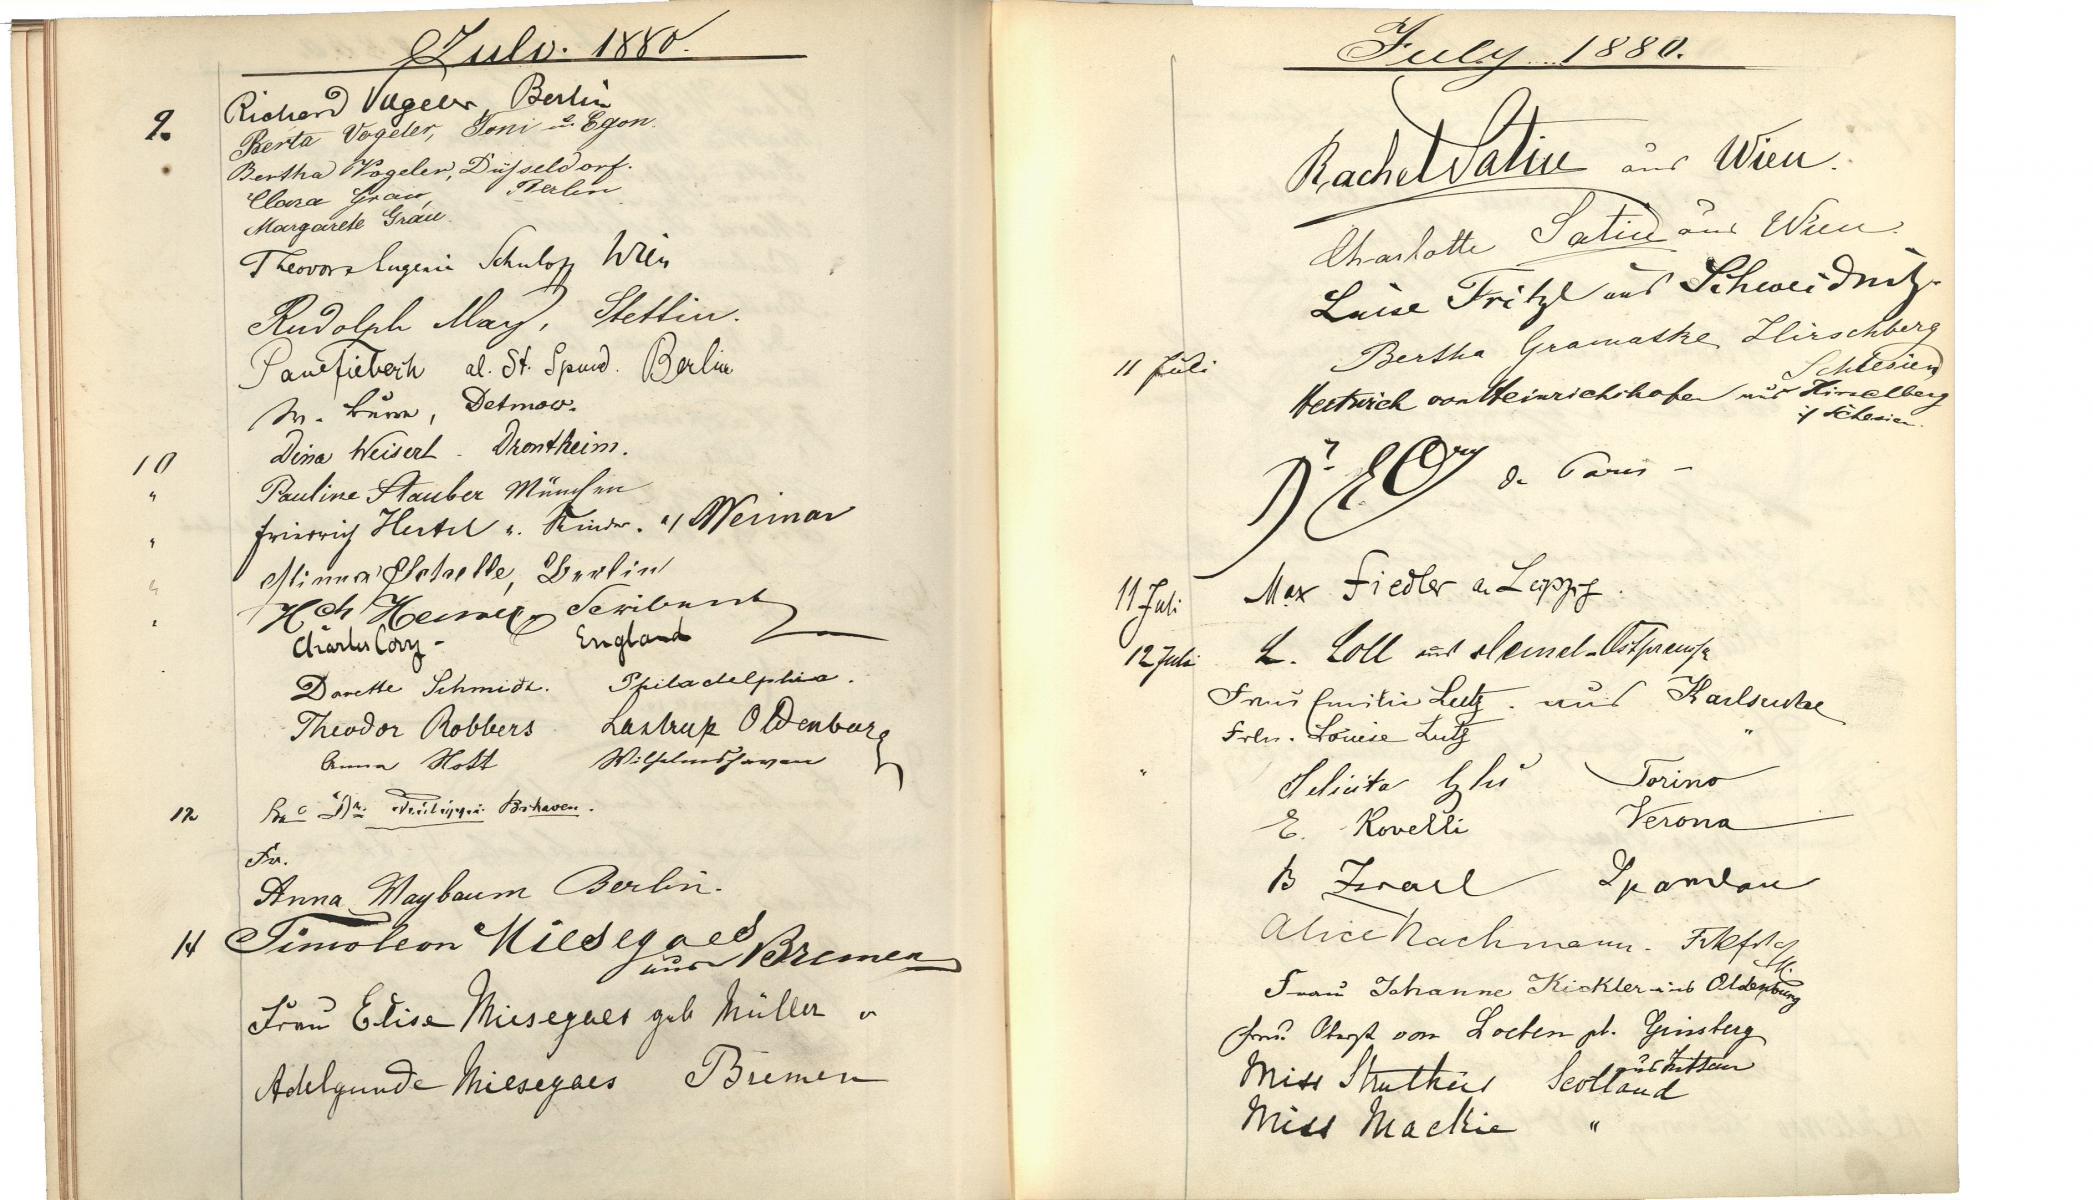 July. 1880.
9. Richard Vogeler, Berlin
Berta Vogeler, Toni u. Egon.
Bertha Vogeler, Düsseldorf.
Clara Grau, Berlin
Margarete Grau.
Eugenie Wien
Rudolph May, Stettin.
Berlin
Detmold.
10 Dina Weisert Drontheim.
" Pauline Stauber München
" Friedrich Hertel u. Kinder. a/ Weimar
" Minna Berlin
"
Charles Cory - England
Dorette Schmidt. Philadelphia.
Theodor Robbers Lastrup Oldenburg
Anna Nott Wilhelmshaven
12 Dr. Bshaven.
Fr.
Anna Maybaum Berlin.
14 Timoleon Miesegaes
aus Bremen
Frau Elise Miesegaes geb Müller u
Adelgunde Miesegaes Bremen
July 1880.
Rachel Satin aus Wien.
Charlotte Satin aus Wien.
Luise Fritzl aus Schweidnitz.
Bertha Gramatke Hirschberg
Schlesien
11 Juli von Heinrichshofen aus Hirschberg
i/ Schlesien.
de Paris -
11 Juli Max Fiedler a. Leipzig.
12 Juli L. Loll aus Memel Ostpreuße
Frau Emilie Lutz. aus Karlsruhe
Frln. Louise Lutz "
" Felicita Torino
E. Rovelli Verona
B Israel Spandau
Alice Nachmann. Frkft a/
M.
Frau Johanne Kickler aus Oldenburg
Frau Oberst von Loeben gb. Ginsberg
aus
Miss Struthers Scotland
Miss Mackie "